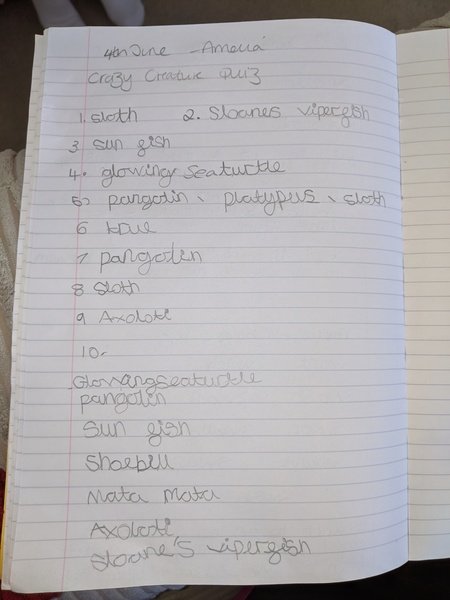 4th June - Amelia
Crazy Creature Quiz
1. Sloth 2. Sloanes viperfish
3 Sun fish
4. glowing seaturtle
5. pangolin, platypus, sloth
6 true
7 pangolin
8 Sloth
9 Axolotl
10.
Glowingseaturtle
pangolin
Sun fish
Shoebill
Mata Mata
Axolotl
Sloane's viperfish